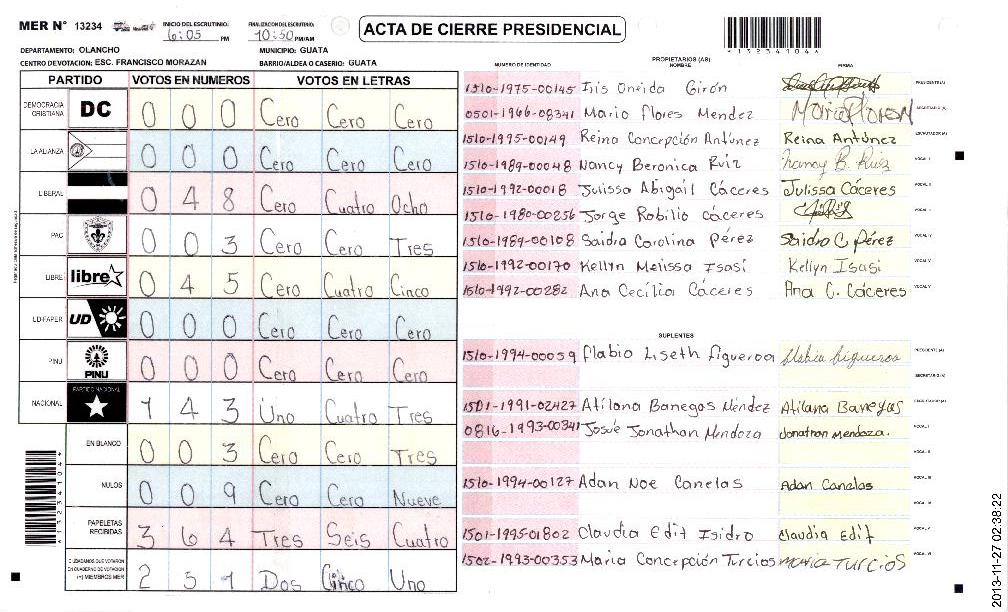 MER N° 13234 INICIO DEL ESCRUTINIO: 6:05 PM FINALIZACION DEL ESCRUTINIO: 10:50 PM/AM
ACTA DE CIERRE PRESIDENCIAL
*13234104*
DEPARTAMENTO: OLANCHO MUNICIPIO: GUATA
CENTRO DE VOTACION: ESC. FRANCISCO MORAZAN BARRIO/ALDEA O CASERIO: GUATA
PARTIDO VOTOS EN NUMEROS VOTOS EN LETRAS
DEMOCRACIA CRISTIANA DC 0 0 0 Cero Cero Cero
LA ALIANZA 0 0 0 Cero Cero Cero
LIBERAL 0 4 8 Cero Cuatro Ocho
PAC 0 0 3 Cero Cero Tres
LIBRE libre 0 4 5 Cero Cuatro Cinco
UD/FAPER UD 0 0 0 Cero Cero Cero
PINU PINU 0 0 0 Cero Cero Cero
NACIONAL PARTIDO NACIONAL 1 4 3 Uno Cuatro Tres
EN BLANCO 0 0 3 Cero Cero Tres
NULOS 0 0 9 Cero Cero Nueve
PAPELETAS RECIBIDAS 3 6 4 Tres Seis Cuatro
CIUDADANOS QUE VOTARON EN CUADERNO DE VOTACION (+) MIEMBROS MER 2 5 1 Dos Cinco Uno
NUMERO DE IDENTIDAD PROPIETARIOS (AS) NOMBRE FIRMA
1510-1975-00145 Iris Oneida Girón PRESIDENTE(A)
0501-1966-08341 Mario Flores Mendez Mario Flores SECRETARIO(A)
1510-1995-00149 Reina Concepción Antúnez Reina Antúnez ESCRUTADOR(A)
1510-1989-00048 Nancy Beronica Ruiz Nancy B. Ruiz VOCAL I
1510-1992-00018 Julissa Abigail Cáceres Julissa Cáceres VOCAL II
1510-1980-00256 Jorge Robilio Cáceres
1510-1989-00108 Saidra Carolina Pérez Saidra C Pérez VOCAL IV
1510-1992-00170 Kellyn Melissa Isasi Kellyn Isasi VOCAL V
1510-1992-00282 Ana Cecilia Cáceres Ana C. Cáceres VOCAL V
SUPLENTES
1510-1994-00059 Flabio Liseth Figueroa Flabia Figueroa PRESIDENTE (A)
SECRETARIO (A)
1501-1991-02427 Atilana Banegas Méndez Atilana Banegas ESCRUTADOR(A)
0816-1993-00341 Josué Jonathan Mendoza Jonathan Mendoza. VOCAL I
VOCAL II
1510-1994-00127 Adan Noe Canelas Adan Canelas VOCAL III
VOCAL IV
1501-1995-01802 Claudia Edit Isidro Claudia Edit VOCAL V
1502-1993-00353 Maria Concepción Turcios Maria Turcios VOCAL VI
2013-11-27 02:38:22